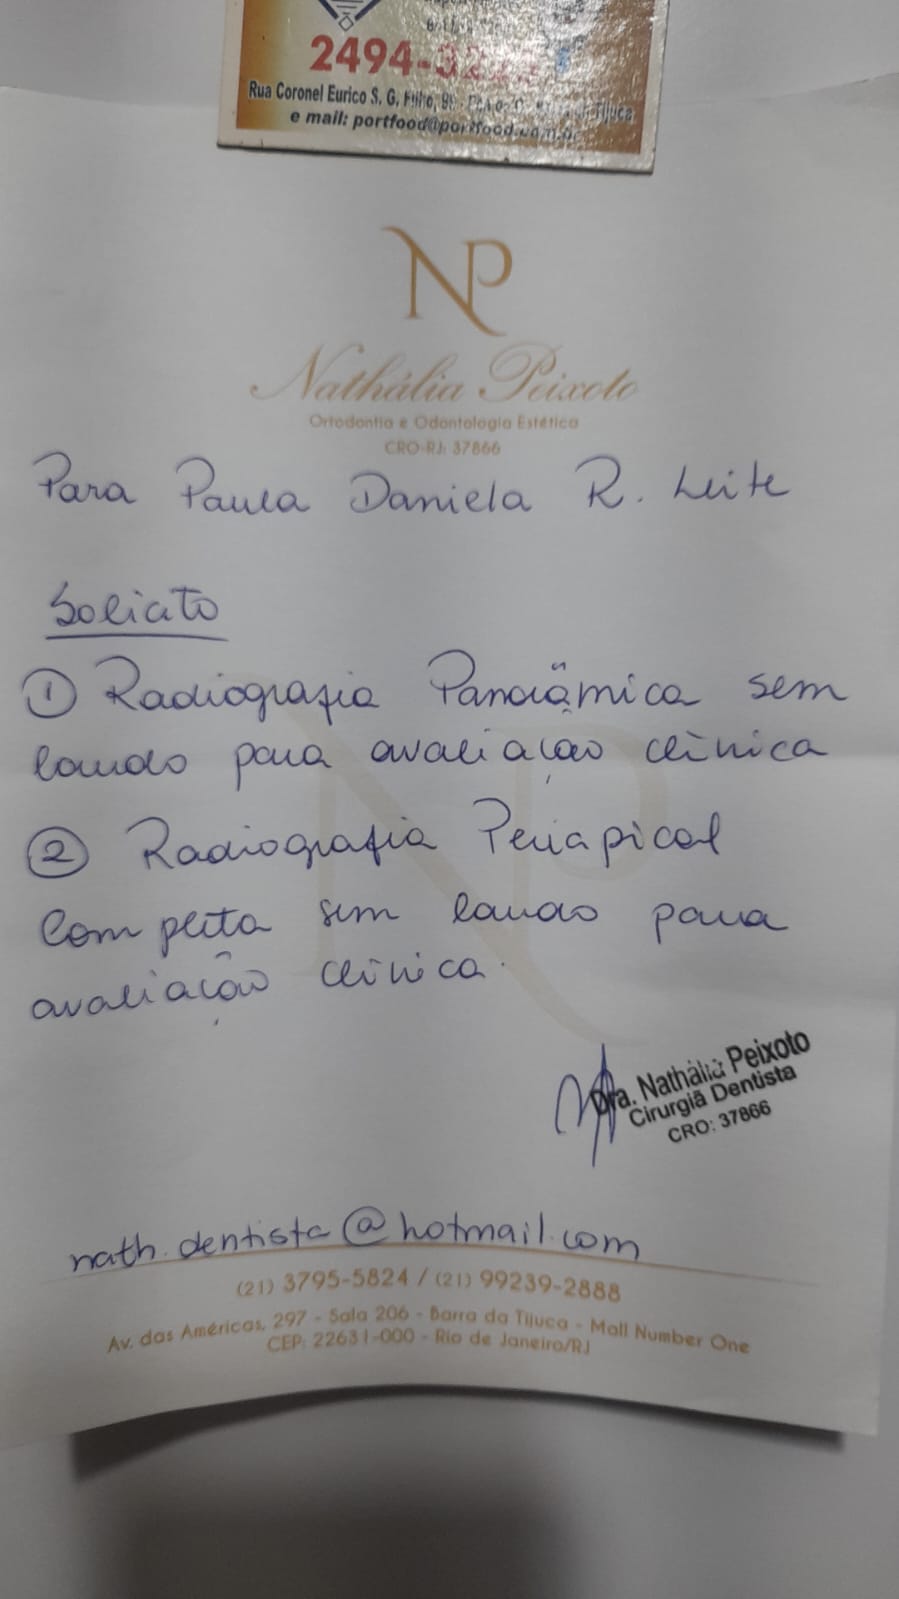 2494-
Rua Coronel Eurico S. G. Filho,
e mail: portfood@portfood.com.br
NP
Nathália Peixoto
Ortodontia e Odontologia Estética
CRO-RJ: 37866
Para Paula Daniela R. Leite
Solicito
① Radiografia Panorâmica sem
laudo para avaliação clínica
② Radiografia Periapical
Completa sem laudo para
avaliação clínica.
Dra. Nathália Peixoto
Cirurgiã Dentista
CRO: 37866
nath.dentista@hotmail.com
(21) 3795-5824 / (21) 99239-2888
Av. das Américas, 297 - Sala 206 - Barra da Tijuca - Mall Number One
CEP: 22631-000 - Rio de Janeiro/RJ